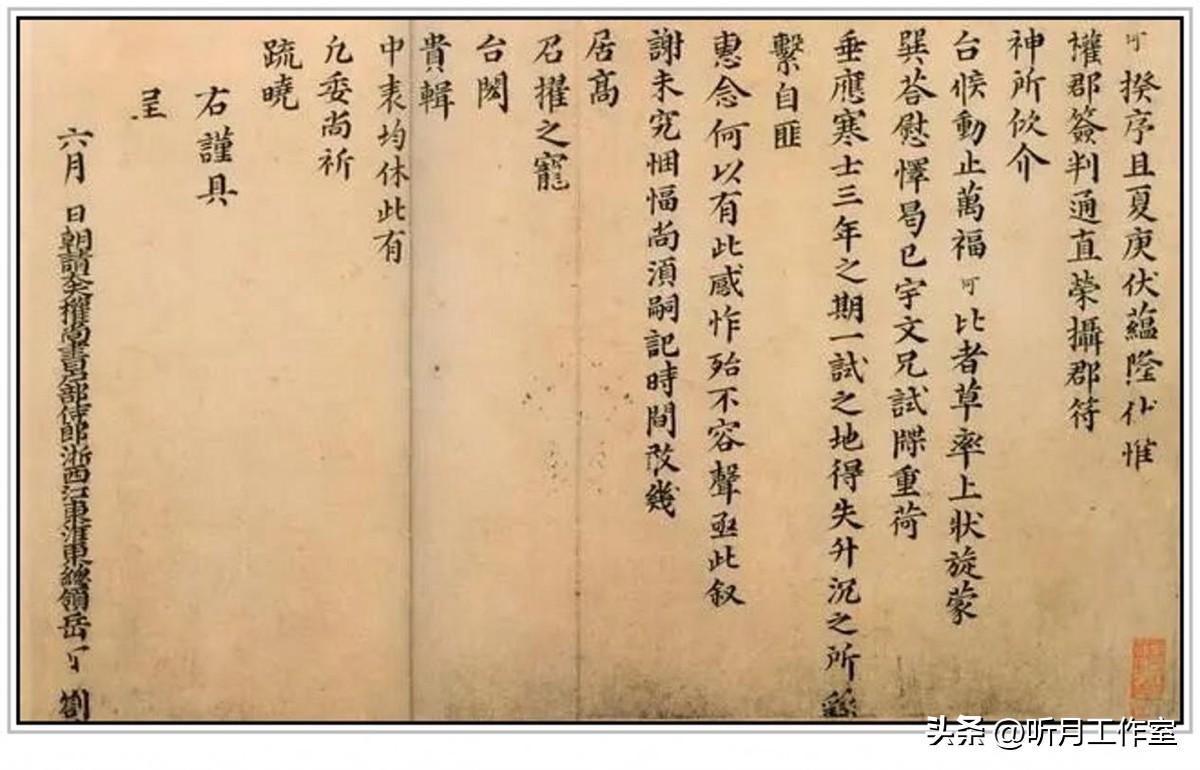 可揆序且夏庚伏蘊隆仆惟
權郡簽判通直榮攝郡符
神所攸介
台候動止萬福可比者草率上狀旋蒙
巽荅慰懌曷已宇文兄試牒重荷
垂應寒士三年之期一試之地得失升沉之所
繫自匪
惠念何以有此感怍殆不容聲亟此叙
謝未究悃愊尚須嗣記時間改幾
居高
召擢之寵
台閎
貴輯
中表均休此有
凢委尚祈
疏曉
右謹具
呈
六月 日朝請大夫權尚書戶部侍郎浙西江東淮東總領岳 劄
头条 @听月工作室